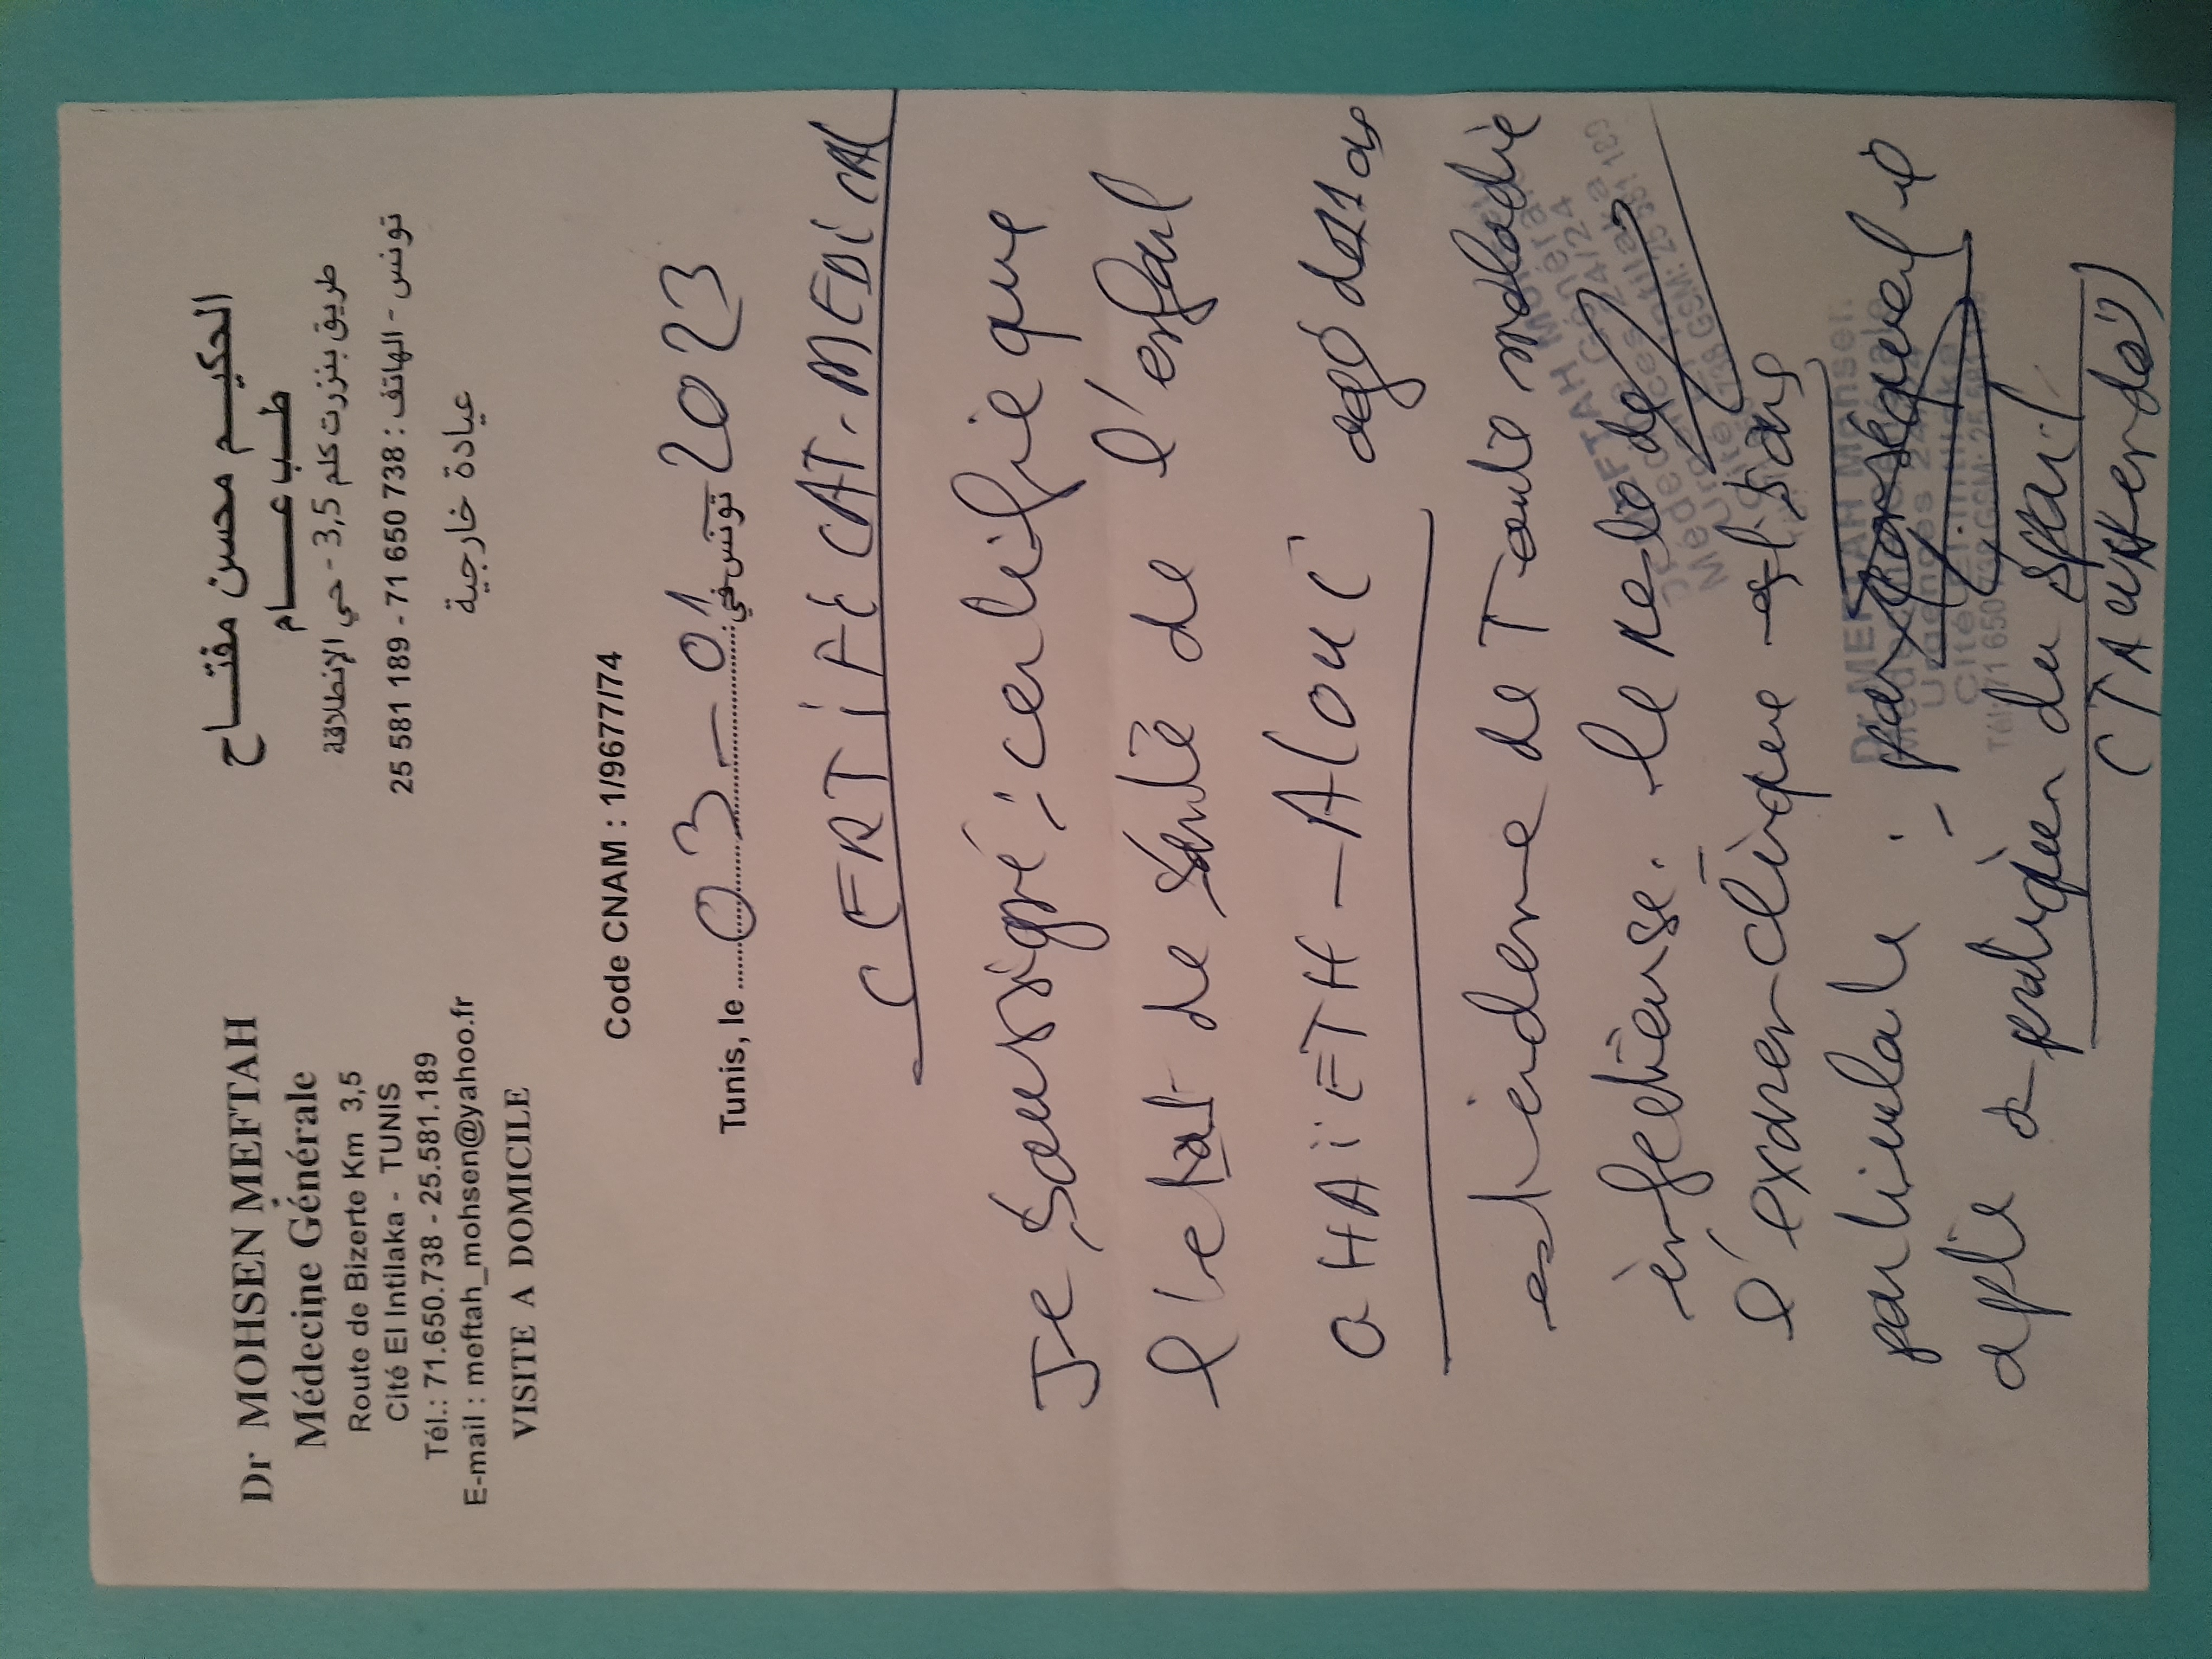 Dr MOHSEN MEFTAH
Médecine Générale
Route de Bizerte Km 3,5
Cité El Intilaka - TUNIS
Tél.: 71.650.738 - 25.581.189
E-mail : meftah_mohsen@yahoo.fr
VISITE A DOMICILE
الحكيم محسن مفتاح
طب عام
طريق بنزرت كلم 3,5 - حي الإنطلاقة
تونس - الهاتف : 738 650 71 - 189 581 25
عيادة خارجية
Code CNAM : 1/9677/74
Tunis, le 03-01-2023 تونس في
CERTIFICAT-MEDICAL
Je soussigné; certifie que
l'etat de santé de l'enfant
GHAIETH-ALOUI agé de 11 ans
est indemne de Toute maladie
infectieuse. le reste de
l'examen-clinique est sans
particularité. par conséquent il
apte a pratiquer du sport
(TAUKENDO)
Dr MEFTAH Mohsen
Médecine Générale
Urgences 24/24
Cité El-Intilaka
Tél: 71 650 738 GSM: 25 581 189